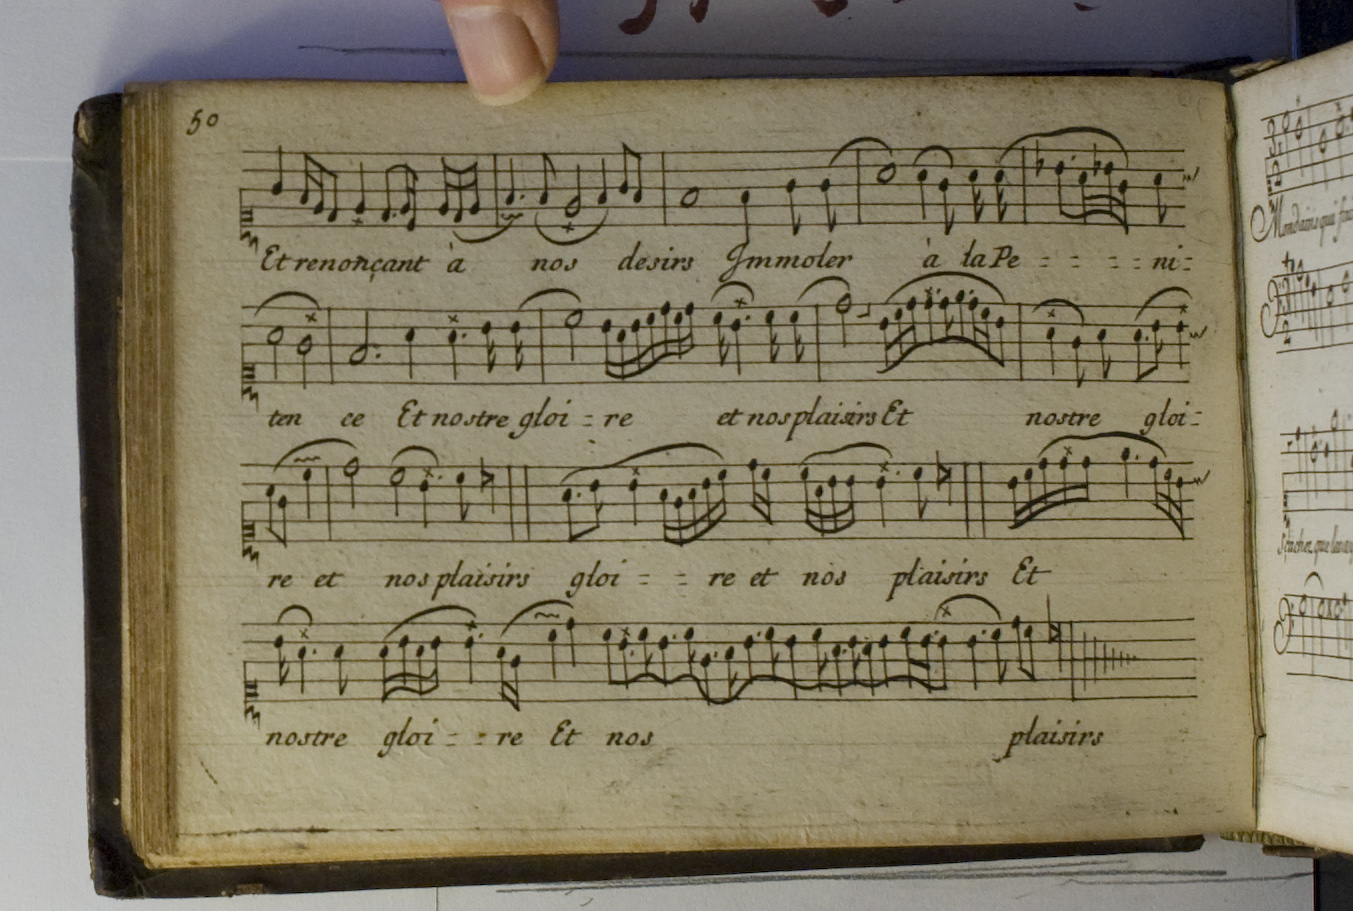 50
Et renonçant à nos desirs Jmmoler à la Pe = = = = ni =
ten ce Et nostre gloi = re et nos plaisirs Et nostre gloi =
re et nos plaisirs gloi = = re et nos plaisirs Et
nostre gloi = = re Et nos plaisirs
Mondains qui